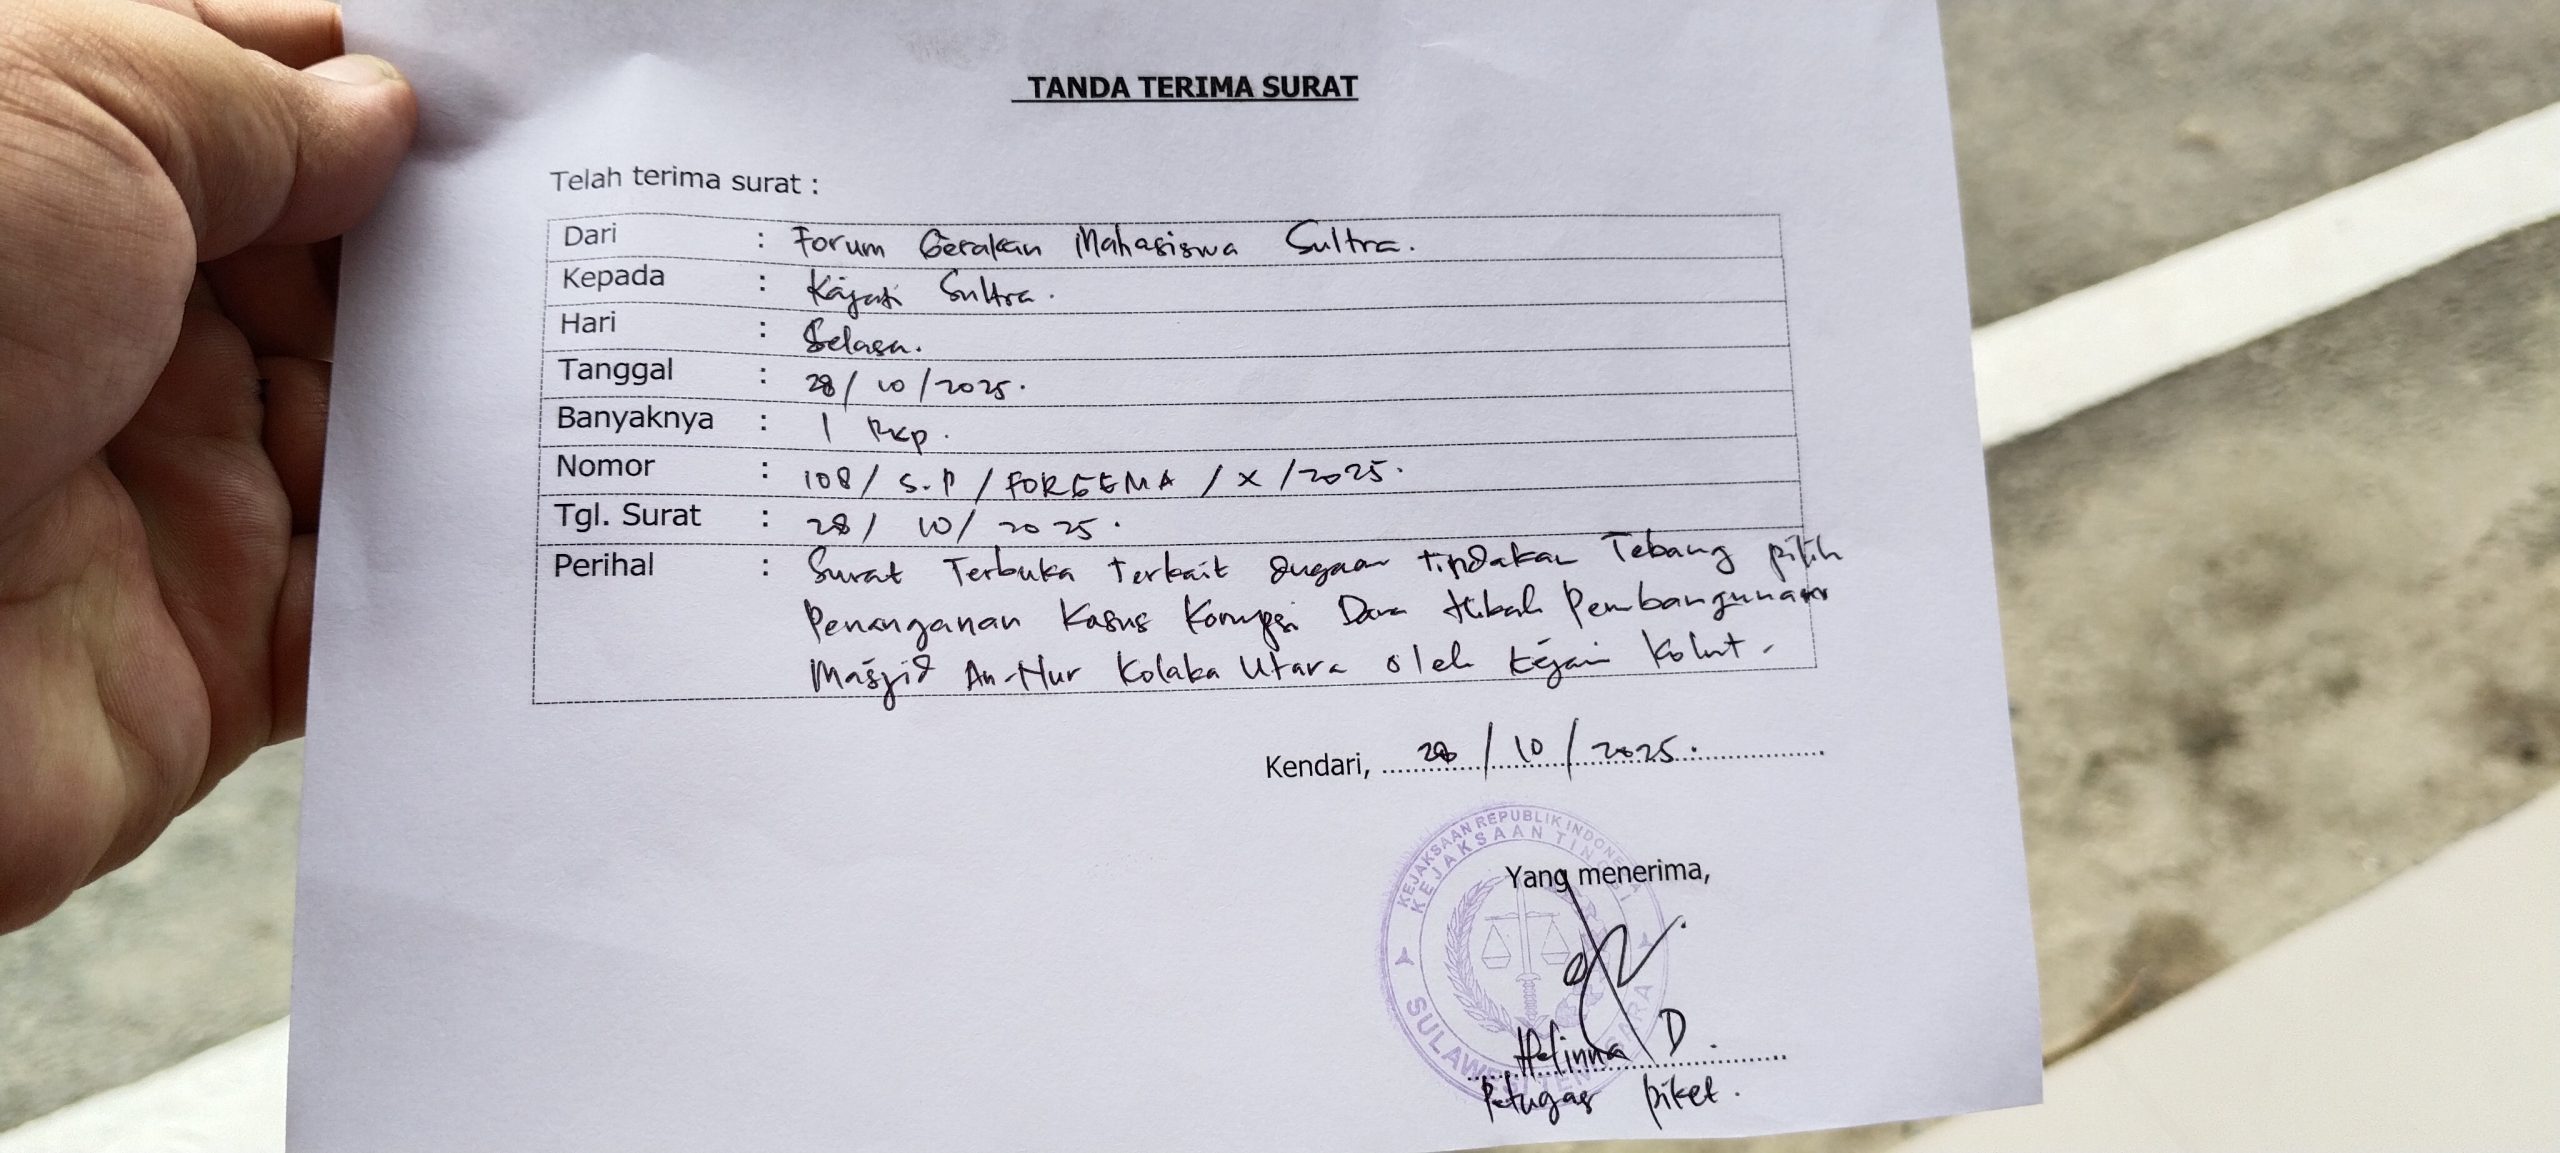 TANDA TERIMA SURAT
Telah terima surat :
Dari : Forum Gerakan Mahasiswa Sultra.
Kepada : Kajati Sultra.
Hari : Selasa.
Tanggal : 28/10/2025.
Banyaknya : 1 Rkp.
Nomor : 108/S.P/FORGEMA/X/2025.
Tgl. Surat : 28/10/2025.
Perihal : Surat Terbuka terkait dugaan tindakan Tebang pilih
Penanganan Kasus Korupsi Dana Hibah Pembangunan
Masjid An-Nur Kolaka Utara oleh Kejari Kolut.
Kendari, 28/10/2025.
KEJAKSAAN REPUBLIK INDONESIA
KEJAKSAAN TINGGI
SULAWESI TENGGARA
Yang menerima,
Helinna D.
Petugas piket.